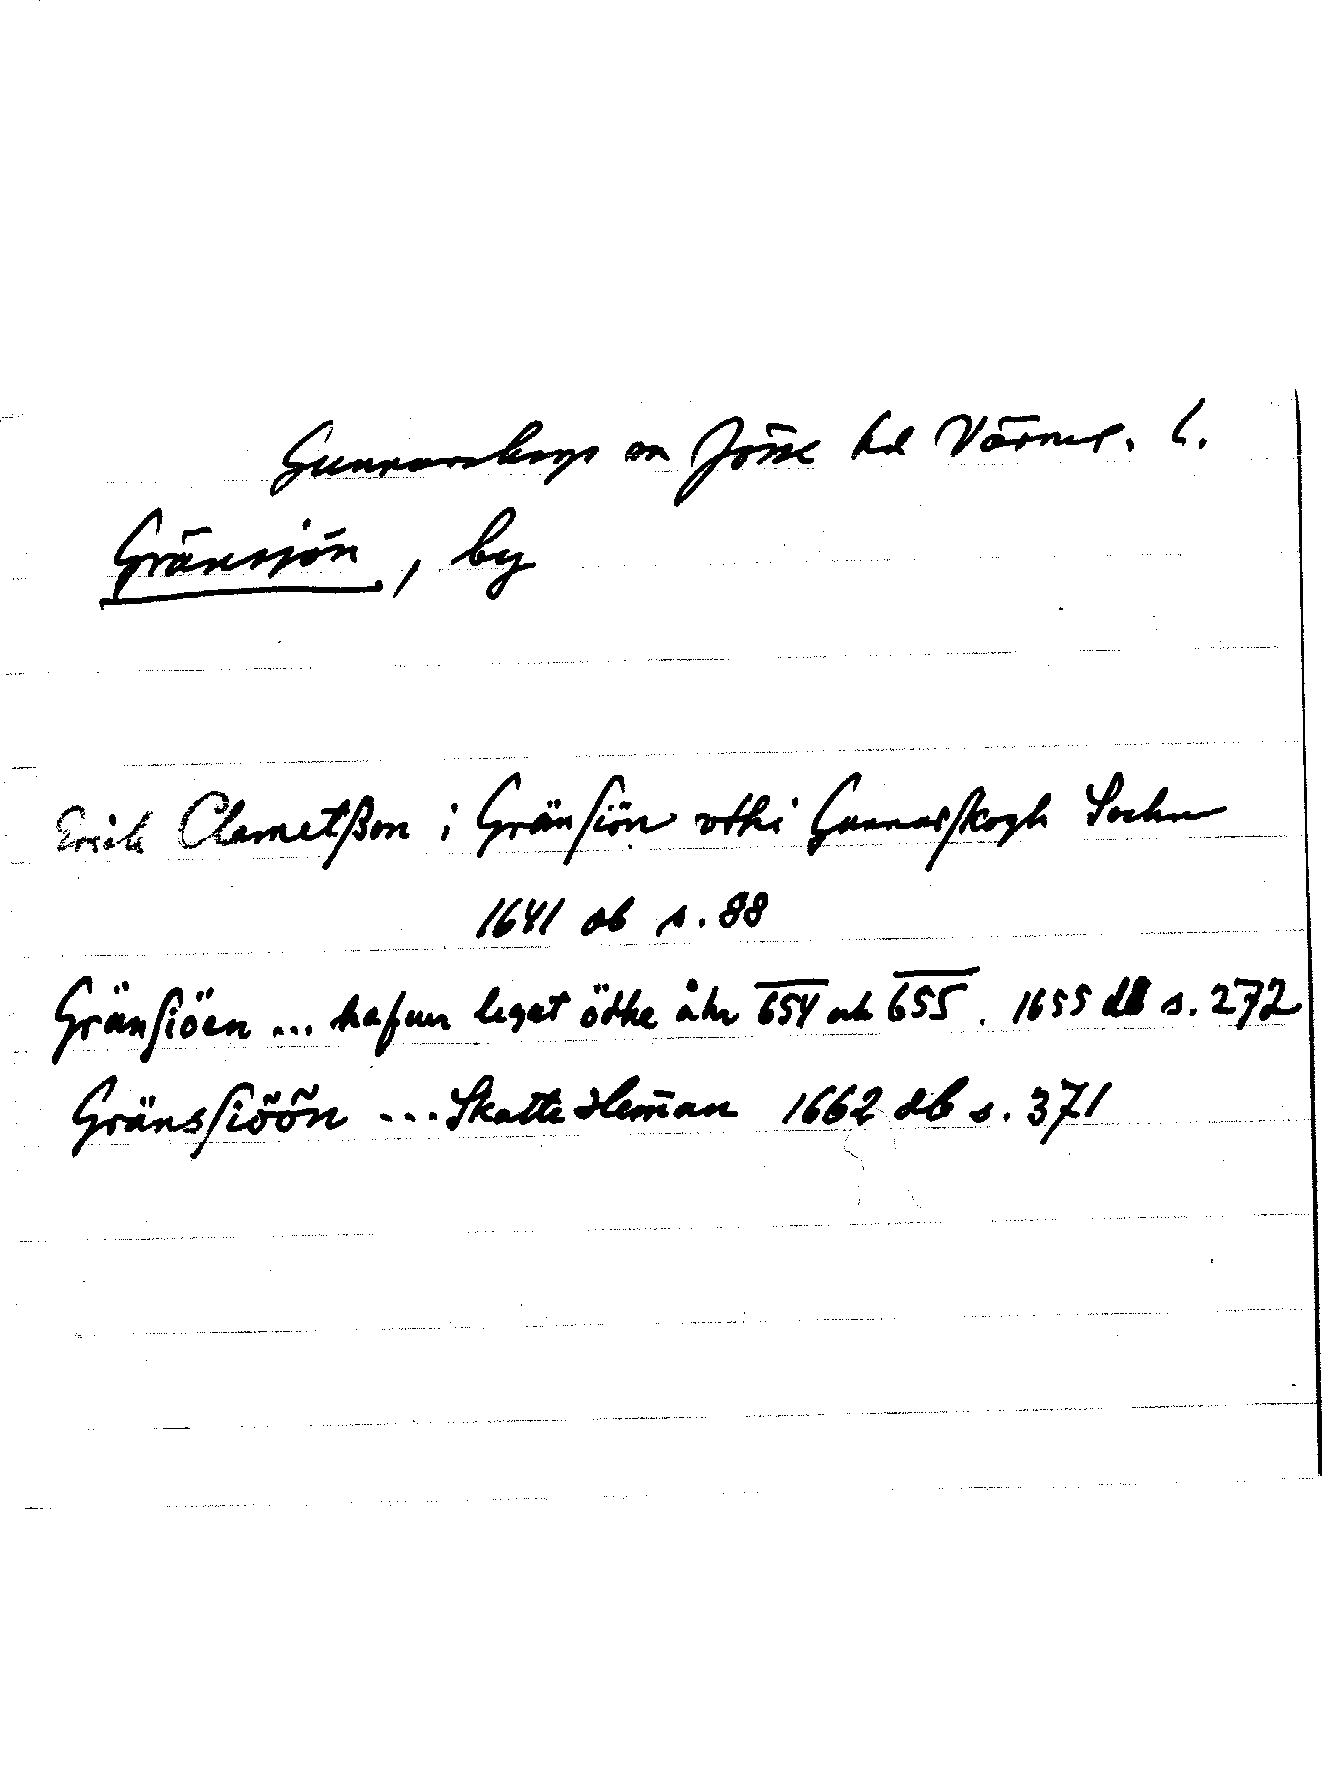 Gunnarskogs sn Jösse hd Värml. l.
Gränsjön, by
Erich Clemetßon i Gränsiön vthi Gunnarskogh Sochn
1641 db s. 88
Gränsiöen ... hafuer leget ödhe åhr 654 och 655. 1655 db s. 272
Gränssiöön ... Skatte Hem̄an 1662 db s. 371